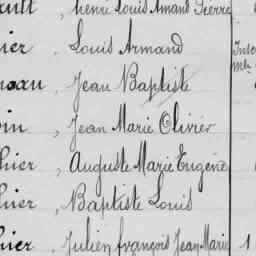 ault, henri Louis Amand Pierre
ier, Louis Armand
eau, Jean Baptiste
in, Jean Marie Olivier
hier, Auguste Marie Eugène
hier, Baptiste Louis
hier, Julien françois Jean Marie 1